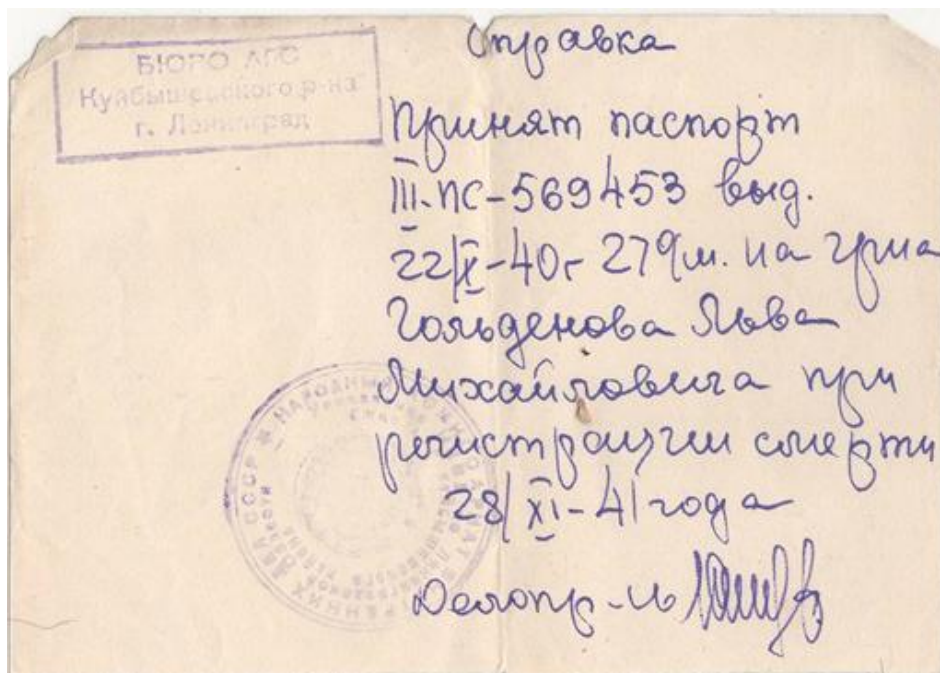 БЮРО ЗАГС
Куйбышевского р-на
г. Ленинград
Справка
Принят паспорт
III-ПС-569453 выд.
22/X-40г 27 9м. на гр-на
Гольденова Льва
Михайловича при
регистрации смерти
28/XI-41 года
Делопр-ль
СССР * НАРОДНЫЙ
ВНУТРЕННИХ ДЕЛ